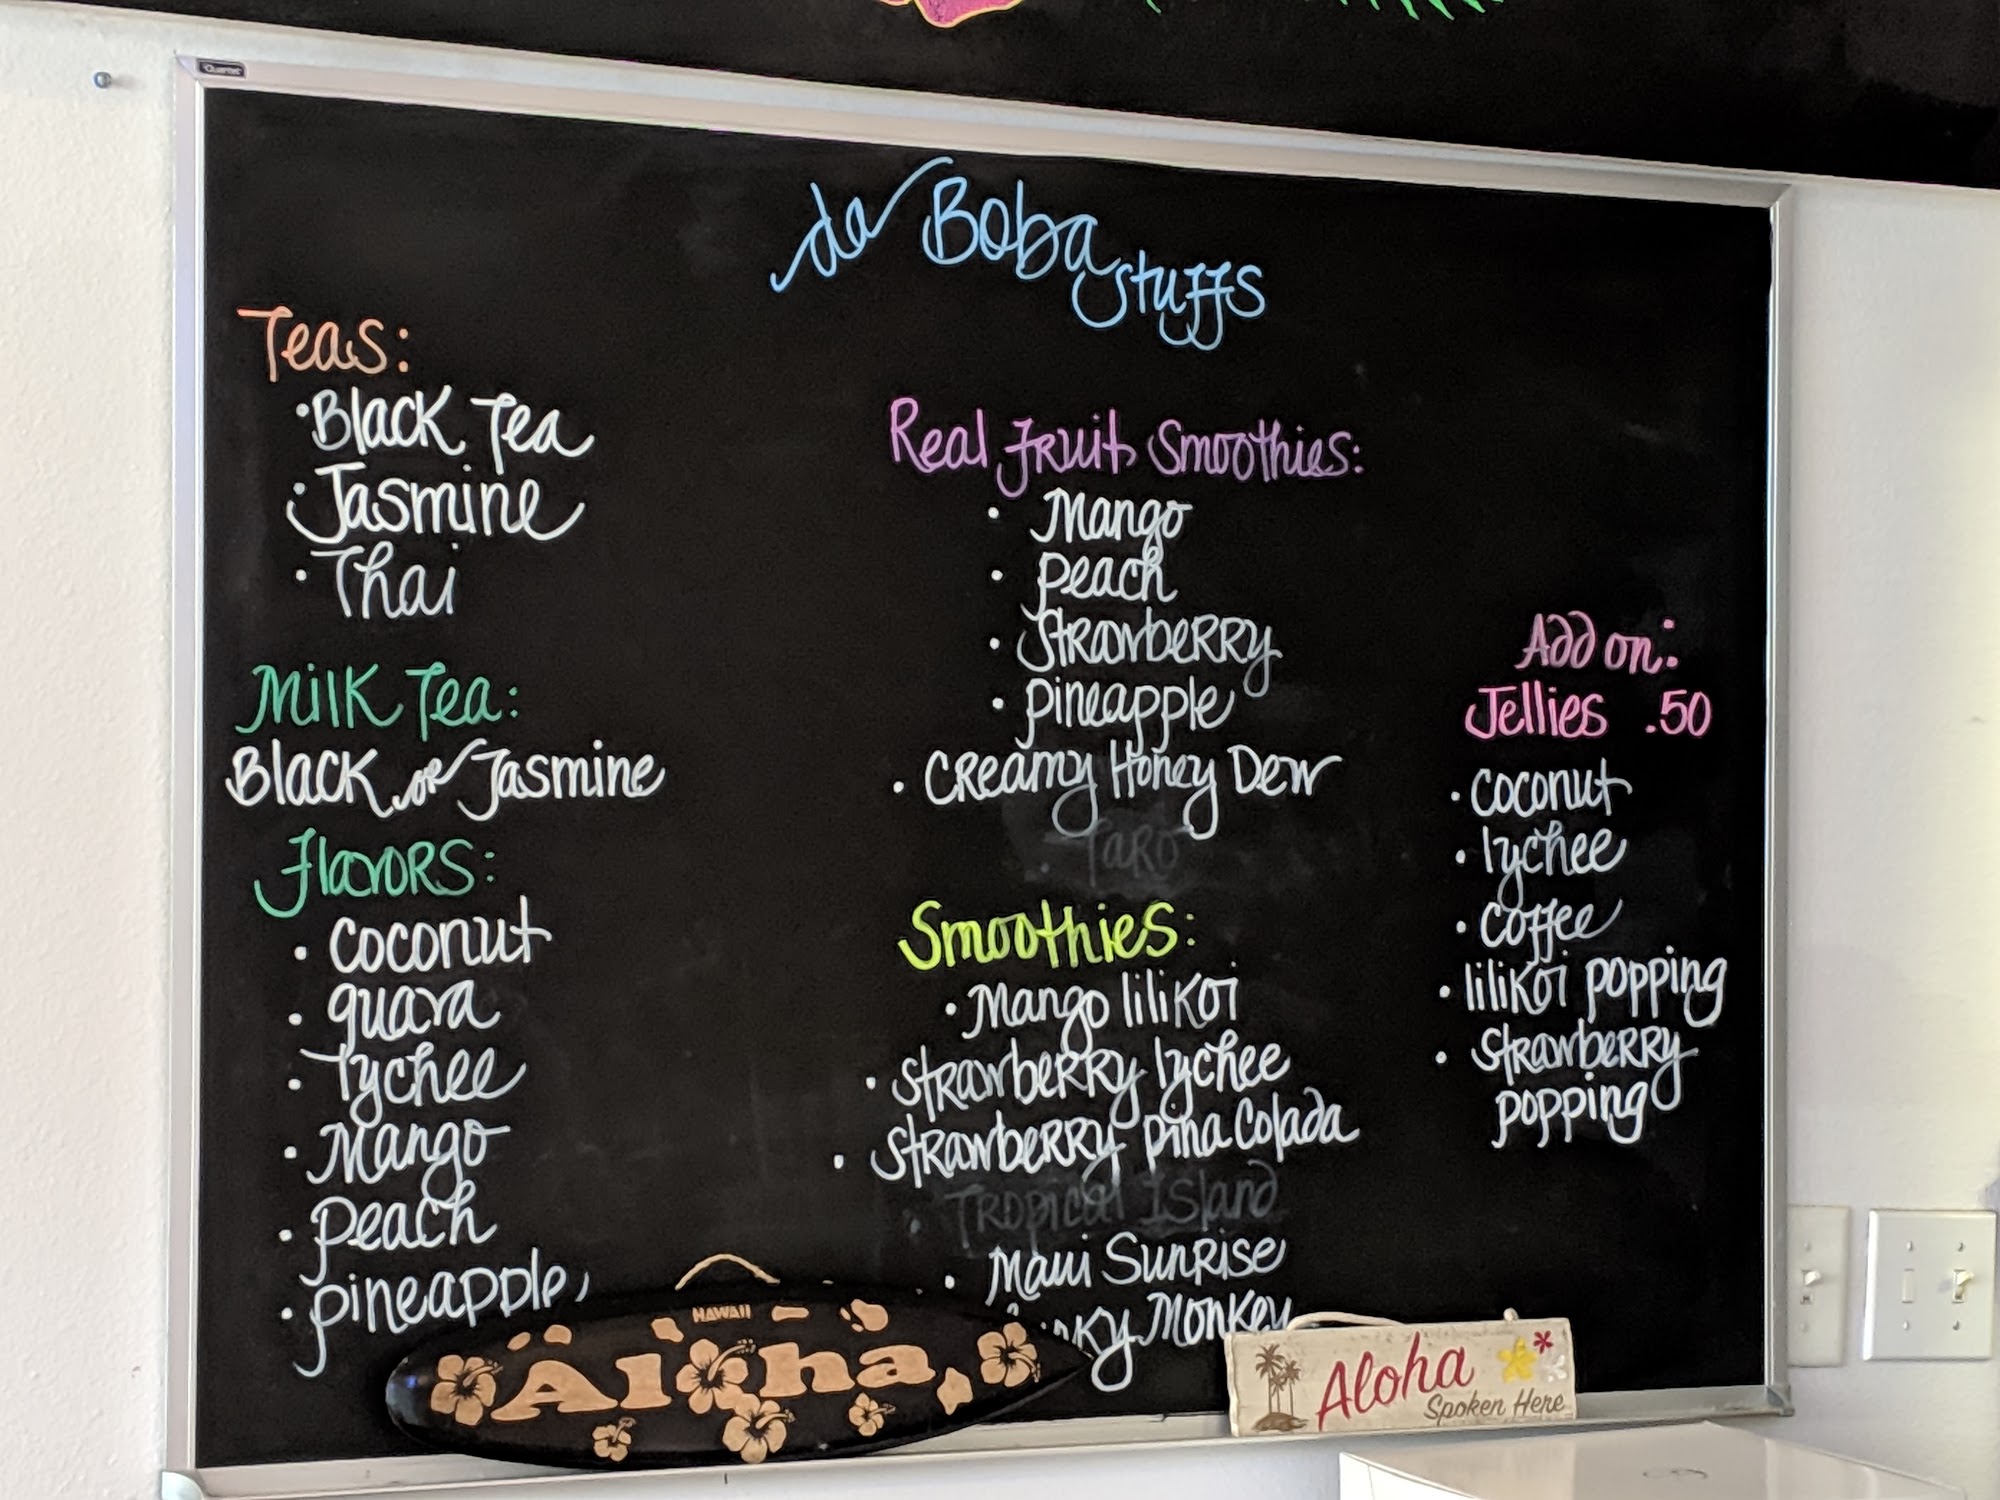 Quartet
da Boba stuffs
Teas:
• Black Tea
• Jasmine
• Thai
Milk Tea:
Black or Jasmine
Flavors:
• coconut
• guava
• lychee
• Mango
• peach
• pineapple
Real Fruit Smoothies:
• Mango
• peach
• Strawberry
• pineapple
• Creamy Honey Dew
Taro
Smoothies:
• Mango lilikoi
• Strawberry lychee
• Strawberry pina Colada
Tropical Island
• Maui Sunrise
Monkey
Add on:
Jellies .50
• coconut
• lychee
• coffee
• lilikoi popping
• Strawberry
popping
HAWAII
Aloha
Aloha
Spoken Here